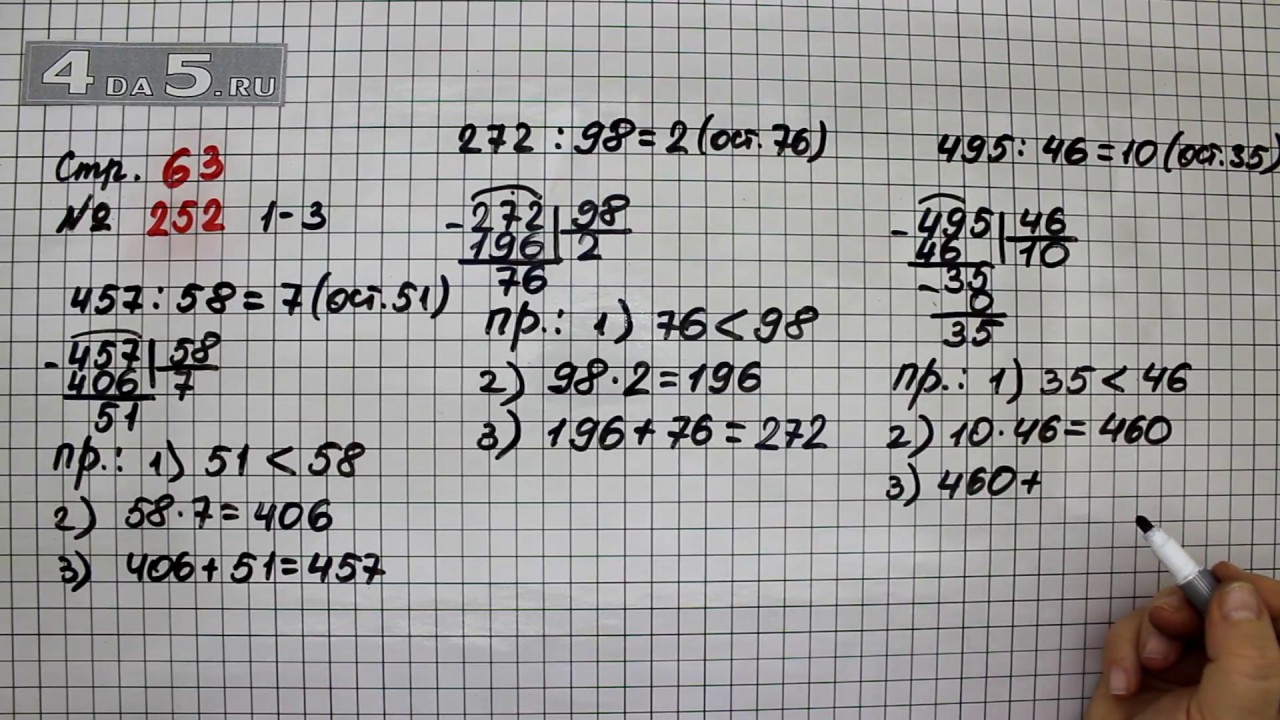 4DA5.RU
Стр. 63
№ 252 1-3
457 : 58 = 7 (ост. 51)
- 457 | 58
406 | 7
51
пр.: 1) 51 < 58
2) 58 · 7 = 406
3) 406 + 51 = 457
272 : 98 = 2 (ост. 76)
- 272 | 98
196 | 2
76
пр.: 1) 76 < 98
2) 98 · 2 = 196
3) 196 + 76 = 272
495 : 46 = 10 (ост. 35)
- 495 | 46
46 | 10
- 35
0
35
пр.: 1) 35 < 46
2) 10 · 46 = 460
3) 460 +